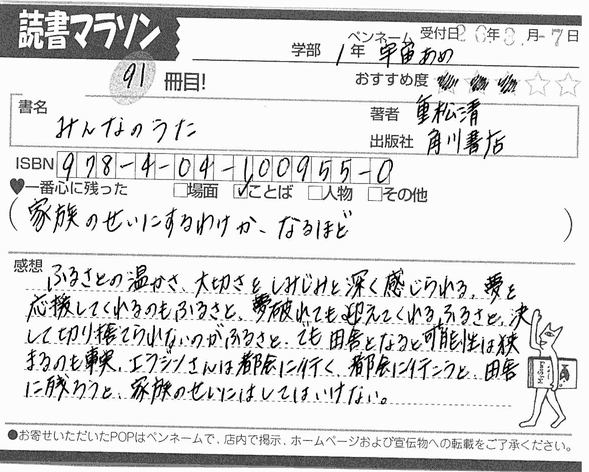 読書マラソン
ペンネーム 受付日 年 月-7日
学部 1年 宇宙あめ
91 冊目!
おすすめ度
書名 みんなのうた
著者 重松清
出版社 角川書店
ISBN 978-4-04-100955-0
♥一番心に残った □場面 ☑ことば □人物 □その他
(家族のせいにするわけか、なるほど)
感想 ふるさとの温かさ、大切さをしみじみと深く感じられる。夢を
応援してくれるのもふるさと、夢破れても迎えてくれるふるさと、決
して切り捨てられないのがふるさと。でも田舎となると可能性は狭
まるのも事実。エラジンさんは都会に行く、都会に行こうと、田舎
に残ろうと、家族のせいにはしてはいけない。
●お寄せいただいたPOPはペンネームで、店内で掲示、ホームページおよび宣伝物への転載をご了承ください。